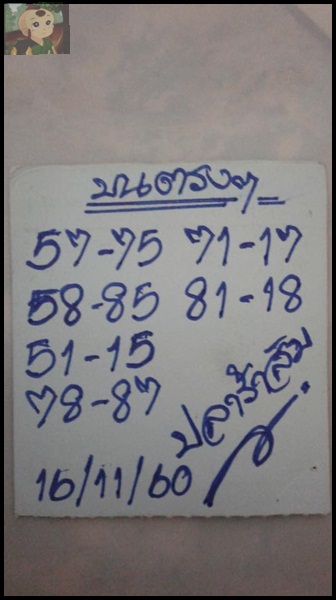 บนตรงๆ
57-75 71-17
58-85 81-18
51-15
78-87
ปลาร้าส้ม
16/11/60